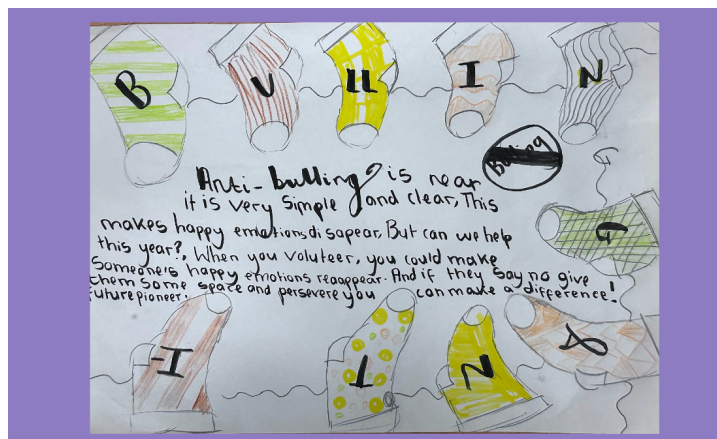 B U ll I N
Bulling
G
Anti-bulling is near
it is very simple and clear, This
makes happy emotions disapear, But can we help
this year?, When you voluteer, you could make
someone's happy emotions reaappear. And if they say no give
them some space and persevere you can make a difference!
future pioneer.
I T N A